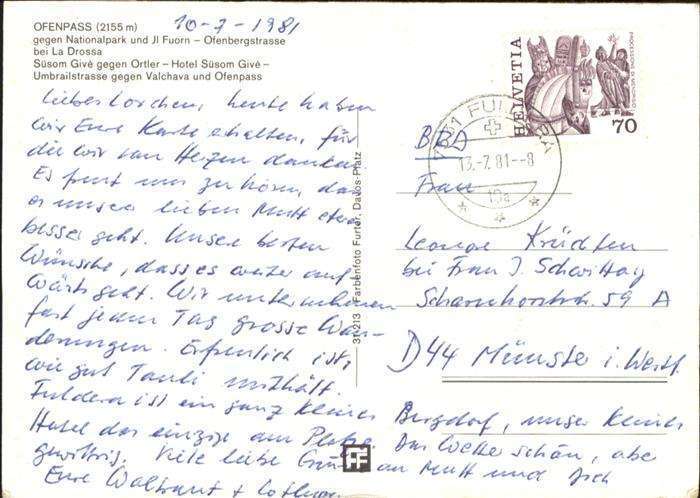 OFENPASS (2155 m)
10-7-1981
gegen Nationalpark und Jl Fuorn – Ofenbergstrasse
bei La Drossa
Süsom Givè gegen Ortler – Hotel Süsom Givè –
Umbrailstrasse gegen Valchava und Ofenpass
heute haben
wir Eure Karte erhalten, für
die wir von Herzen danken.
Es freut uns zu hören, dass
es unser lieben Mutt etwas
besser geht. Unsere besten
Wünsche, dass es weiter auf
wärts geht. Wir unternehmen
fast jeden Tag grosse Wan-
derungen. Erfreulich ist,
wie gut Tanti mithält.
Fuldera ist ein ganz kleines Bergdorf, unser kleines
Hotel das einzige am Platze. Das Wetter schön, aber
gewittrig. Viele liebe Grüsse an Mutt und Dich
Eure Waltraut + Lothar
31 213 Farbenfoto Furter, Davos-Platz
FF
HELVETIA
70
13.-7.81.--8
BRD
Frau
Leonore Krüdten
bei Frau J. Schwittay
Scharnhorststr. 59 A
D44 Münster i. Westf.